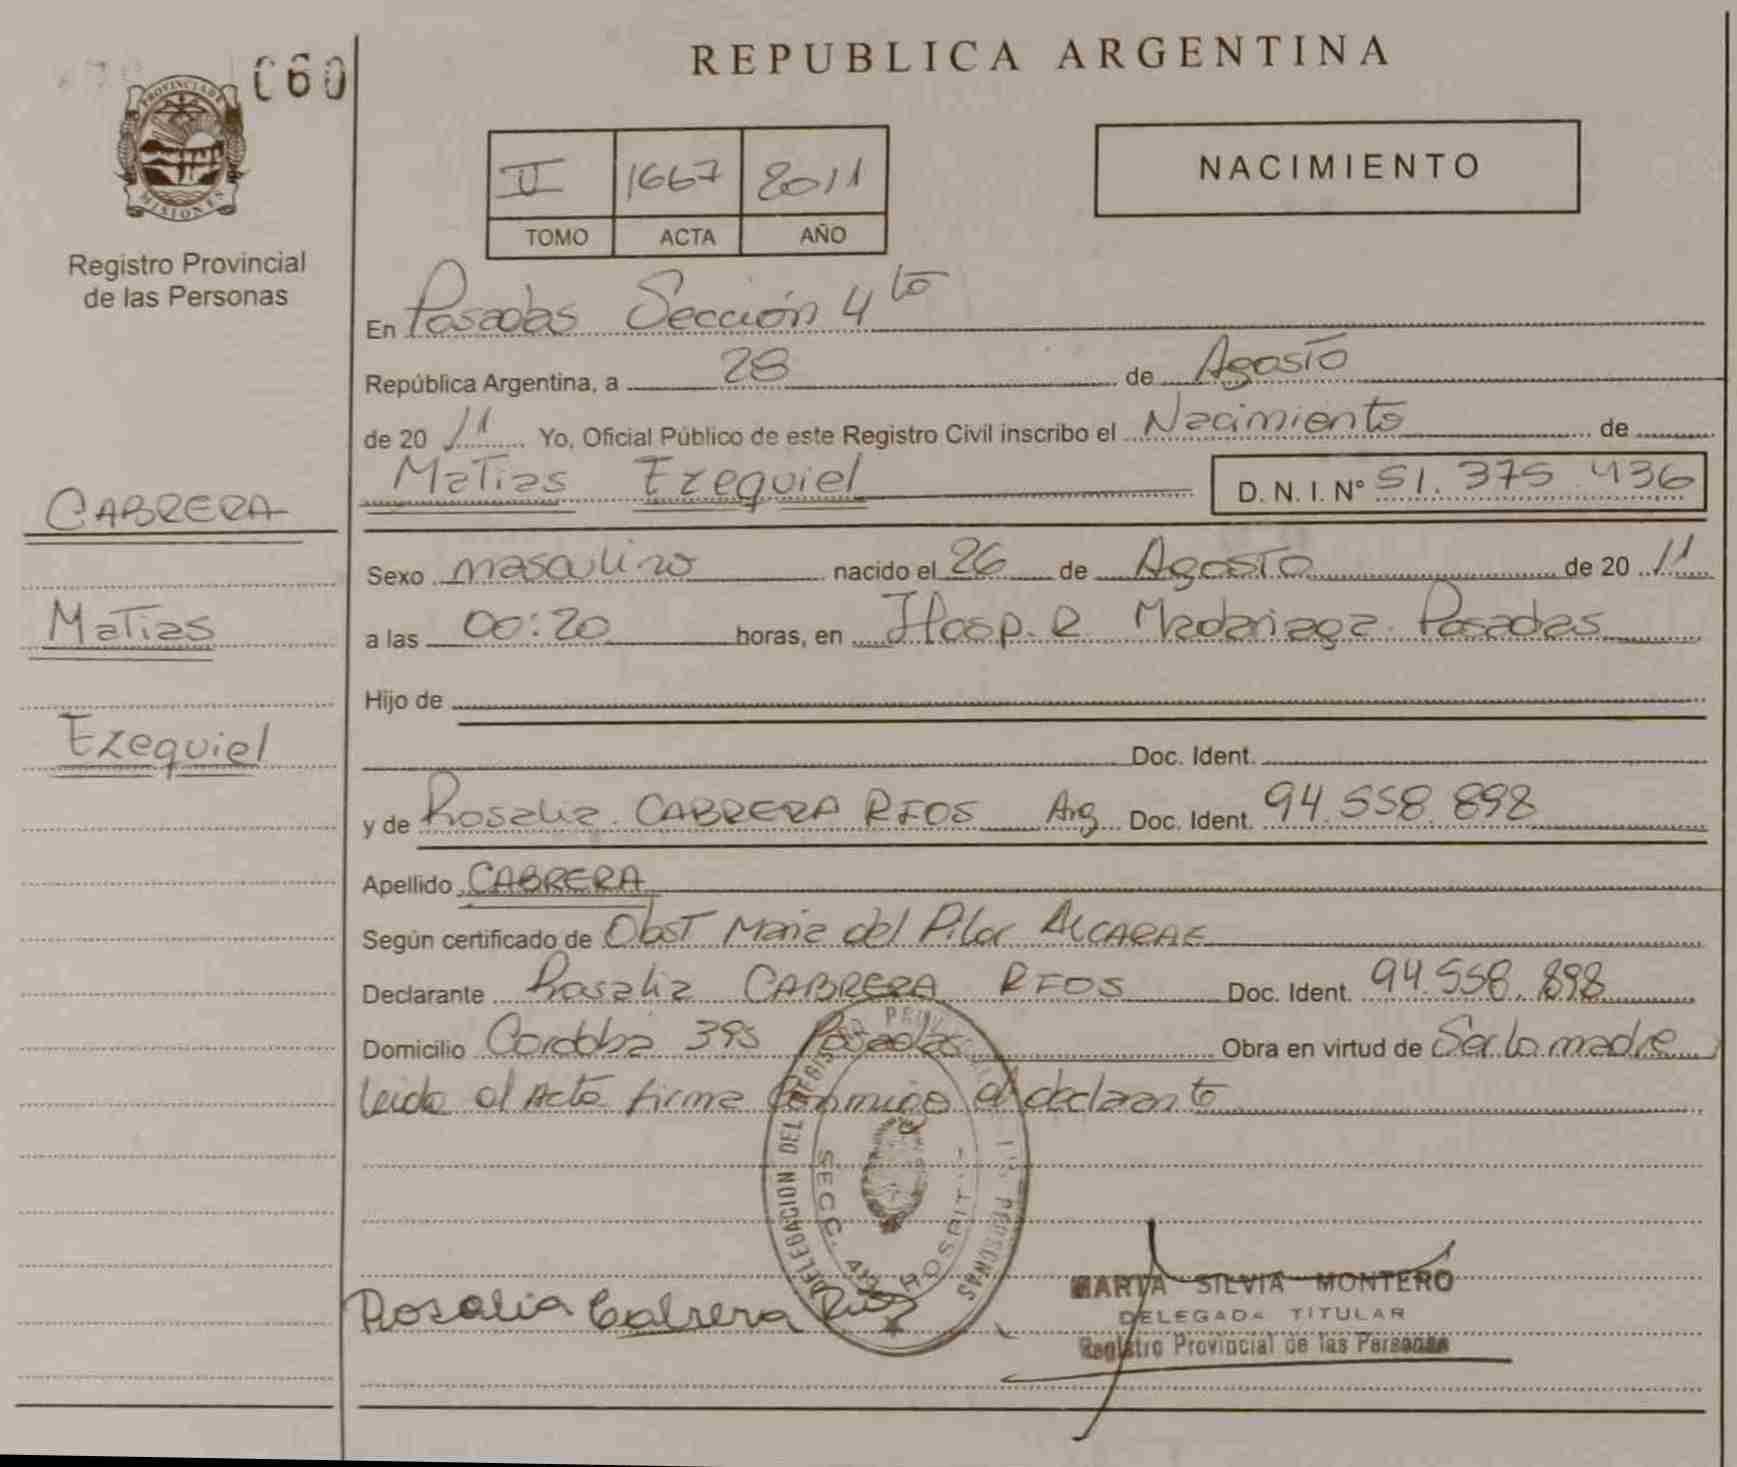 060
PROVINCIA DE
MISIONES
Registro Provincial
de las Personas
CABRERA
Matias
Ezequiel
REPUBLICA ARGENTINA
II 1667 2011
TOMO ACTA AÑO
NACIMIENTO
En Posadas Sección 4to
República Argentina, a 28 de Agosto
de 20 11 Yo, Oficial Público de este Registro Civil inscribo el Nacimiento de
Matias Ezequiel D. N. I. Nº 51.375.436
Sexo masculino nacido el 26 de Agosto de 20 11
a las 00:20 horas, en Hosp. R Madariaga. Posadas
Hijo de
Doc. Ident.
y de Rosalia. CABRERA RIOS Arg Doc. Ident. 94.558.898
Apellido CABRERA
Según certificado de Obst Maria del Pilar ALCARAZ
Declarante Rosalia CABRERA RIOS Doc. Ident. 94.558.898
Domicilio Cordoba 395 Posadas Obra en virtud de Ser la madre
leida el Acta firma conmigo el declarante
DELEGACION DEL REGISTRO PROVINCIAL DE LAS PERSONAS
SECC. 4ta HOSPIT
Rosalia Cabrera Rios
MARTA SILVIA MONTERO
DELEGADA TITULAR
Registro Provincial de las Personas